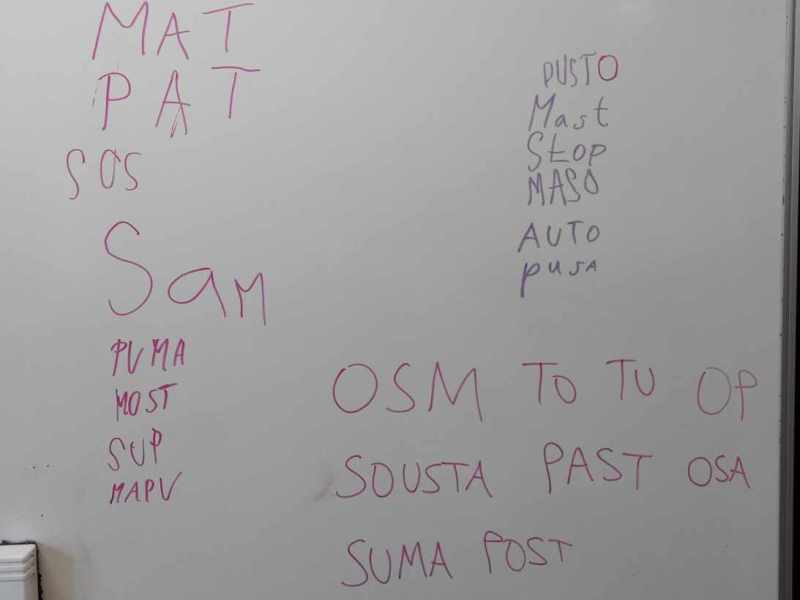 MAT
PAT
SOS
Sam
PUMA
MOST
SUP
MAPU
PUSTO
Mast
Stop
MASO
AUTO
pusA
OSM TO TU OP
SOUSTA PAST OSA
SUMA POST